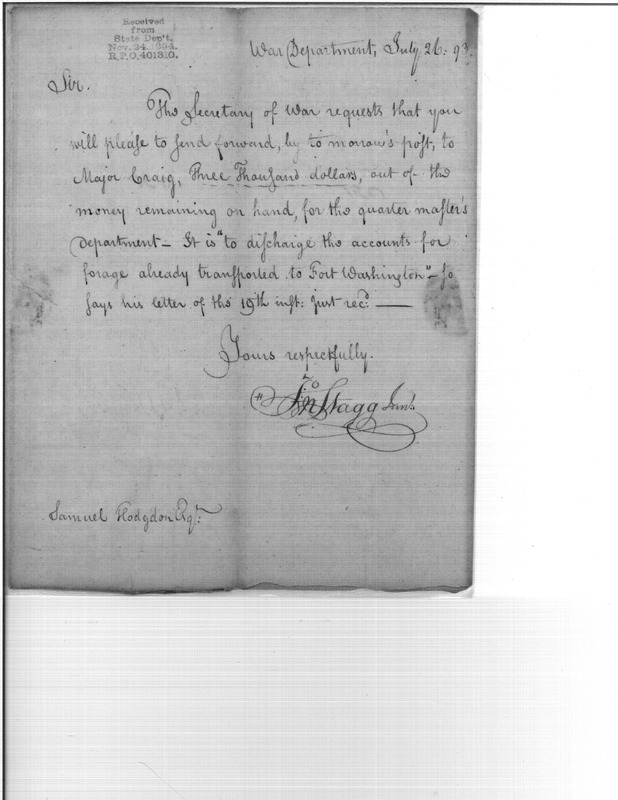 Received
from
State Dep't.
Nov. 24. 1894.
R.P.O. 401310.
War Department, July 26. 93.
Sir.
The Secretary of War requests that you
will please to send forward, by to morrow's post, to
Major Craig, Three Thousand dollars, out of the
money remaining on hand, for the quarter master's
Department — It is "to discharge the accounts for
forage already transported to Fort Washington" — so
says his letter of the 19th inst: just rec.d —
Yours respectfully.
Jno Stagg Jun.r
Samuel Hodgdon Esq.r